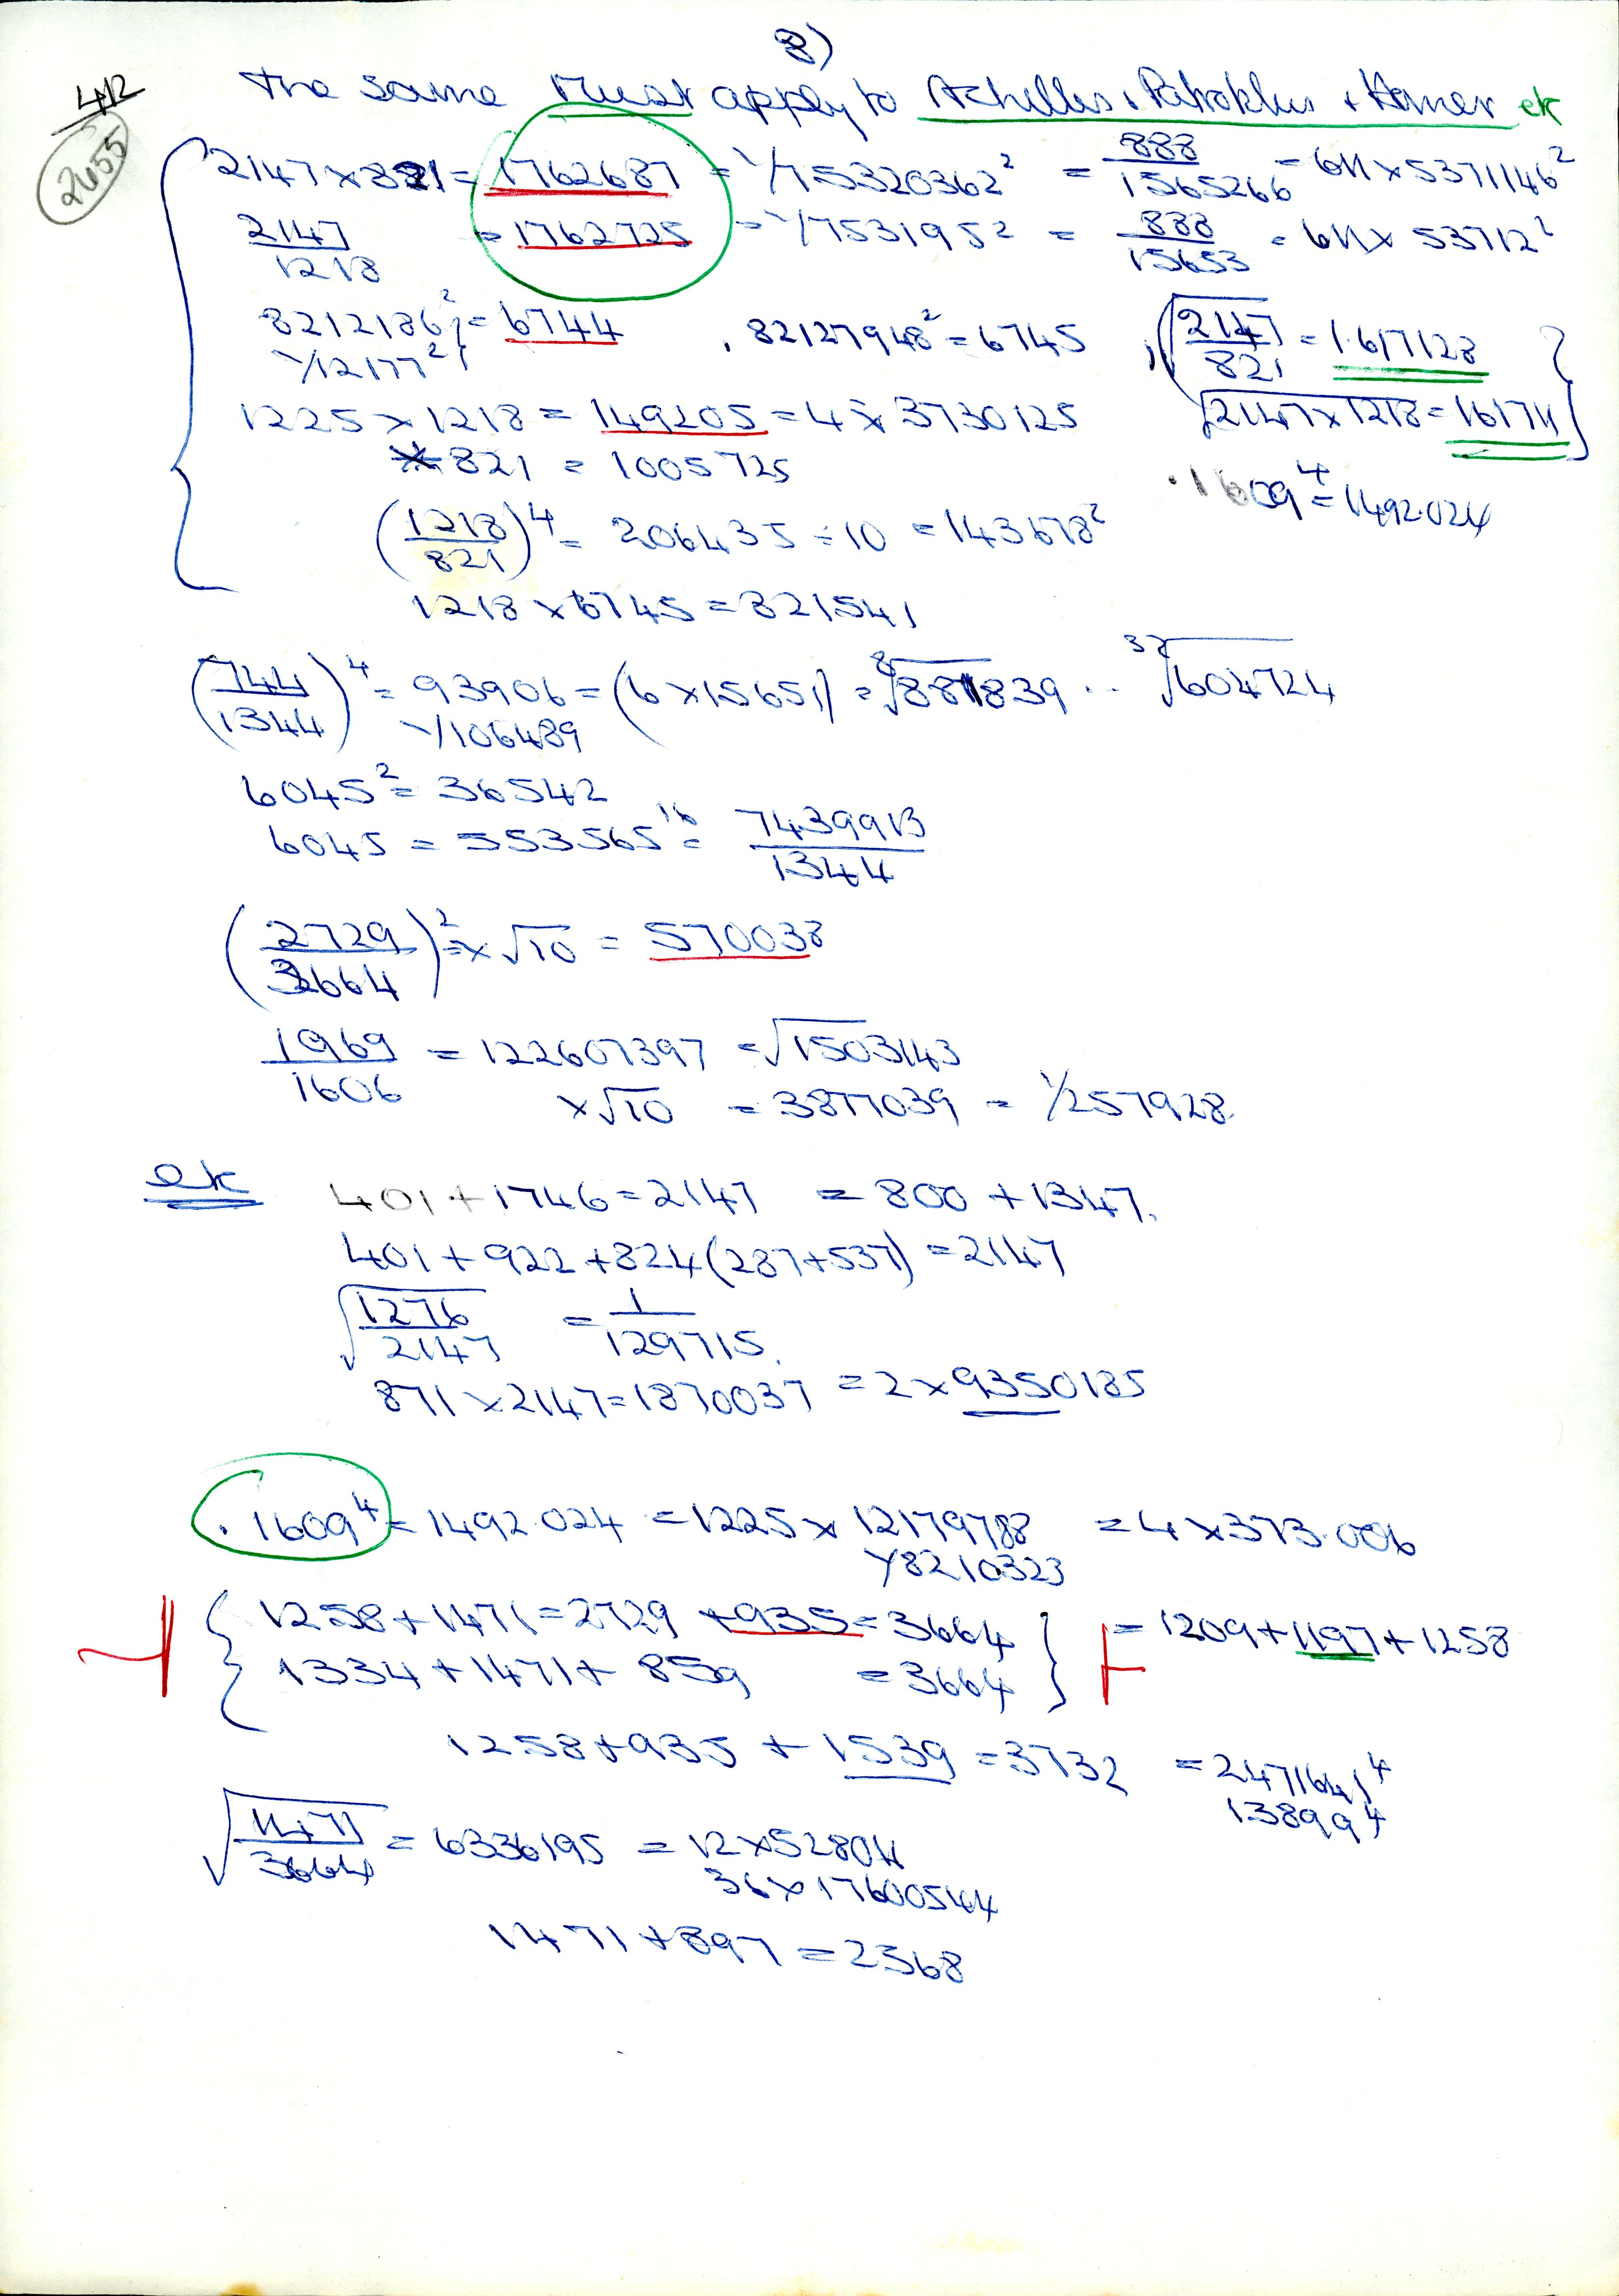 8)
412
2655
The same Must apply to Achilles, Patroklus + Homer ek
2147 × 821 = 1762687 = 1/75320362² = 888/1565266 = 611 × 5371146²
2147/1218 = 1762725 = 1/7531952 = 888/15653 = 611 × 53712²
8212186² = 6744 . 82127948² = 6745 √2147/821 = 1.617128
1/12177²
1225 × 1218 = 149205 = 4 × 3730125 √2147×1218 = 161711
× 821 = 1005725 .1609⁴ = 1492.024
(1218/821)⁴ = 206435 ÷ 10 = 143678²
1218 × 6745 = 821541
(744/1344)⁴ = 93906 = (6 × 15651) = ⁸√881839 .. ³²√604724
1/106489
6045² = 36542
6045 = 553565¹⁶ = 7439913/1344
(2729/3664)² = × √10 = 570038
1969/1606 = 122607397 = √1503143
× √10 = 3877039 = 1/257928.
ek 401 + 1746 = 2147 = 800 + 1347.
401 + 922 + 824 (287+537) = 2147
√1276/2147 = 1/129715.
871 × 2147 = 1870037 = 2 × 9350185
.1609⁴ = 1492.024 = 1225 × 12179788 = 4 × 373.006
1/8210323
{ 1258 + 1471 = 2729 + 935 = 3664 } = 1209 + 1197 + 1258
1334 + 1471 + 859 = 3664
1258 + 935 + 1539 = 3732 = 2471641⁴
13899⁴
√1471/3664 = 6336195 = 12 × 528011
36 × 17600544
1471 + 897 = 2368